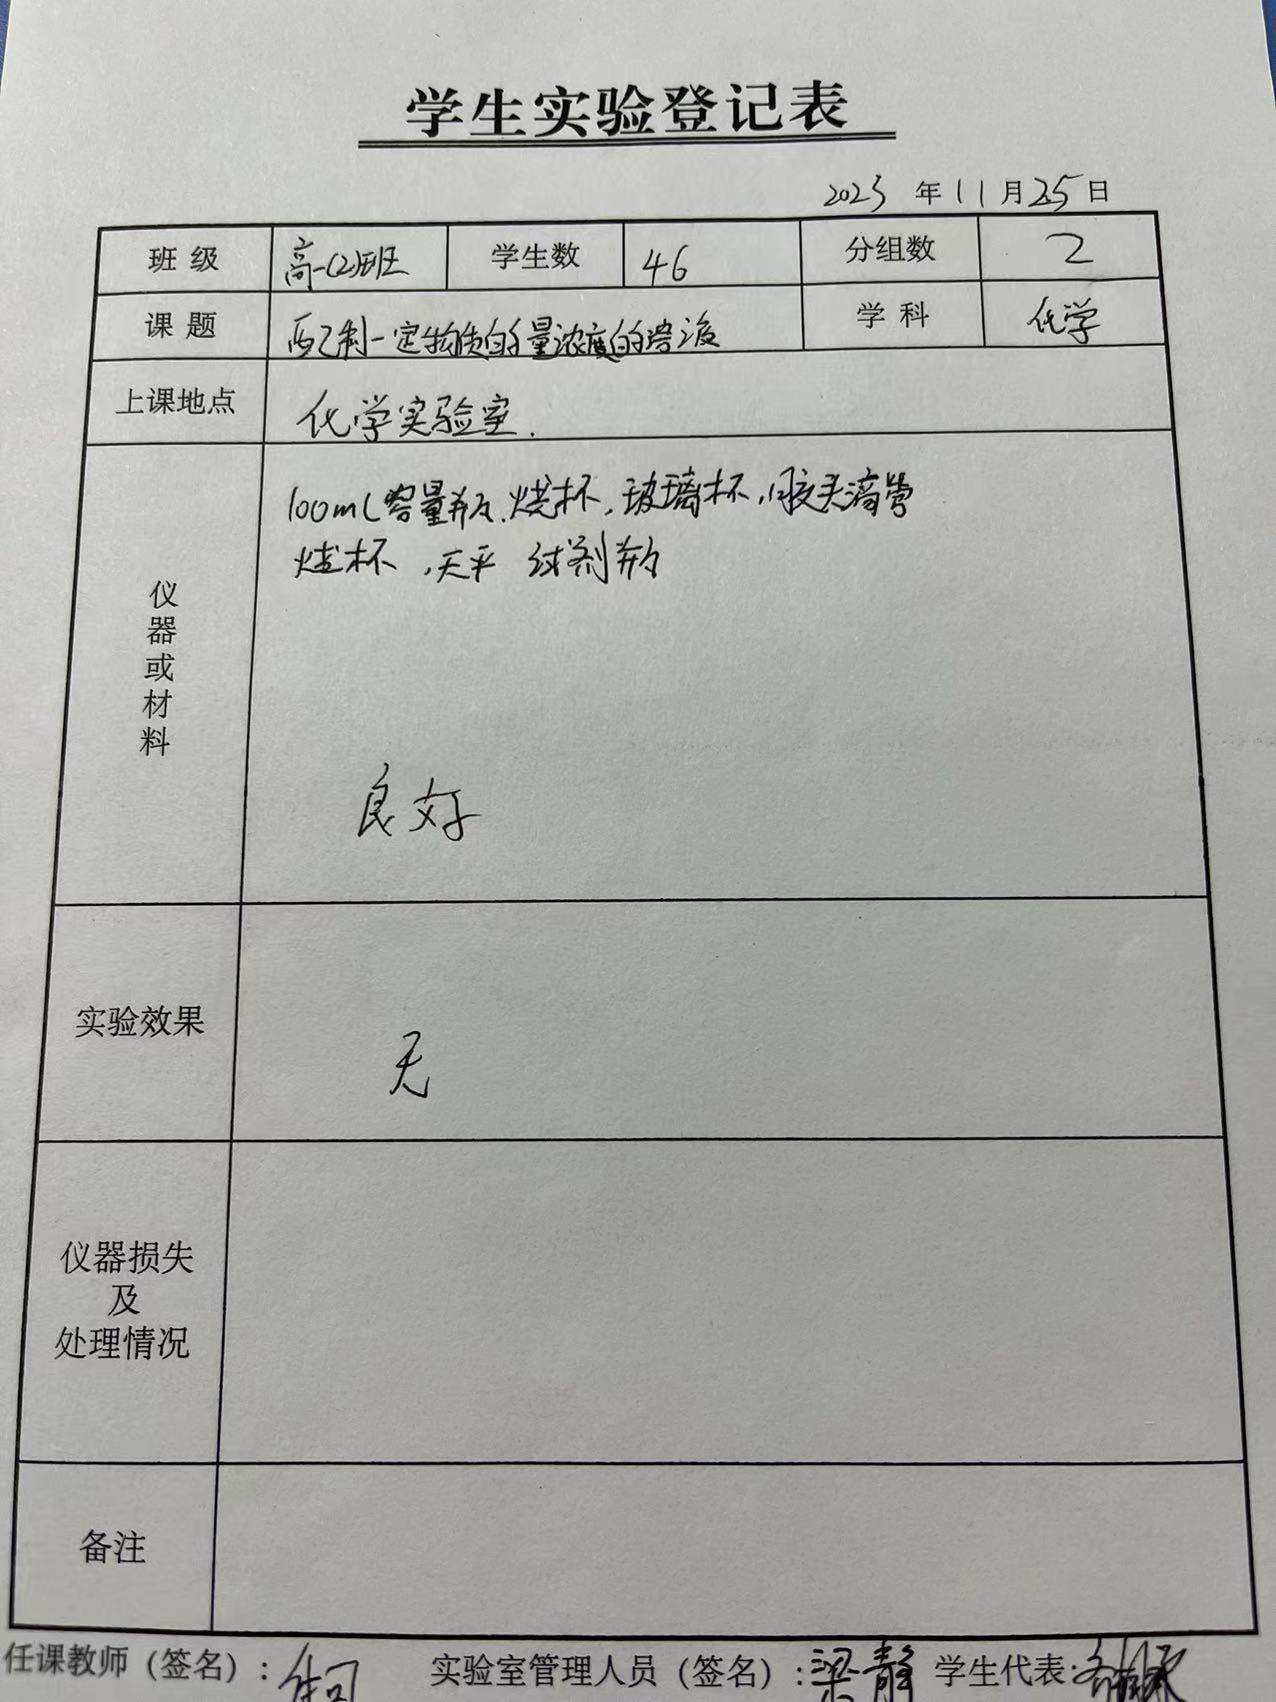 学生实验登记表
2023 年 11 月 25 日
班级 高一(2)班 学生数 46 分组数 2
课题 配制一定物质的量浓度的溶液 学科 化学
上课地点 化学实验室.
仪器或材料
100mL容量瓶、烧杯,玻璃杯,胶头滴管
烧杯,天平 试剂瓶
良好
实验效果
无
仪器损失
及
处理情况
备注
任课教师(签名): 实验室管理人员(签名):梁静 学生代表: